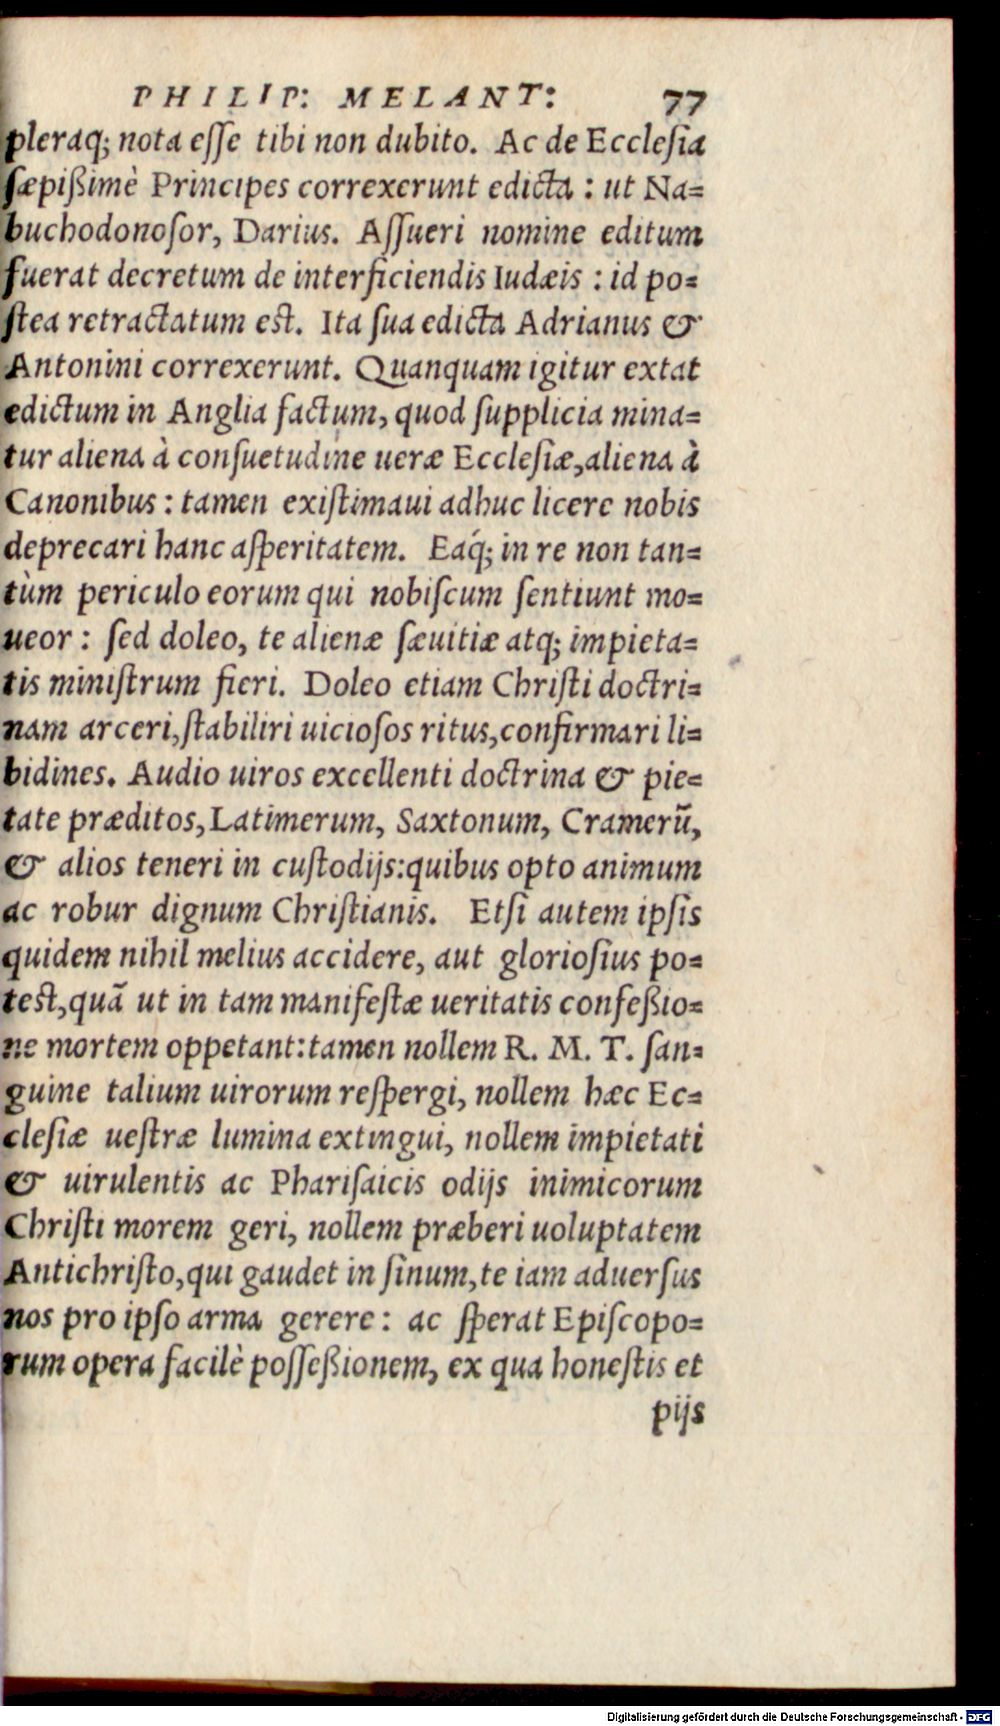 PHILIP: MELANT: 77
pleraq; nota eſſe tibi non dubito. Ac de Eccleſia
ſæpißimè Principes correxerunt edicta : ut Na=
buchodonoſor, Darius. Aſſueri nomine editum
fuerat decretum de interficiendis Iudæis : id po=
ſtea retractatum est. Ita ſua edicta Adrianus &
Antonini correxerunt. Quanquam igitur extat
edictum in Anglia factum, quod ſupplicia mina=
tur aliena à conſuetudine ueræ Eccleſiæ, aliena à
Canonibus : tamen exiſtimaui adhuc licere nobis
deprecari hanc aſperitatem. Eaq́; in re non tan=
tùm periculo eorum qui nobiſcum ſentiunt mo=
ueor : ſed doleo, te alienæ ſæuitiæ atq; impieta=
tis miniſtrum fieri. Doleo etiam Chriſti doctri=
nam arceri, ſtabiliri uicioſos ritus, confirmari li=
bidines. Audio uiros excellenti doctrina & pie=
tate præditos, Latimerum, Saxtonum, Cramerū,
& alios teneri in cuſtodijs: quibus opto animum
ac robur dignum Chriſtianis. Etſi autem ipſis
quidem nihil melius accidere, aut glorioſius po=
test, quā ut in tam manifeſtæ ueritatis confeßio=
ne mortem oppetant: tamen nollem R. M. T. ſan=
guine talium uirorum reſpergi, nollem hæc Ec=
cleſiæ ueſtræ lumina extingui, nollem impietati
& uirulentis ac Phariſaicis odijs inimicorum
Chriſti morem geri, nollem præberi uoluptatem
Antichriſto, qui gaudet in ſinum, te iam aduerſus
nos pro ipſo arma gerere : ac ſperat Epiſcopo=
rum opera facilè poſſeßionem, ex qua honeſtis et
pijs
Digitalisierung gefördert durch die Deutsche Forschungsgemeinschaft - DFG